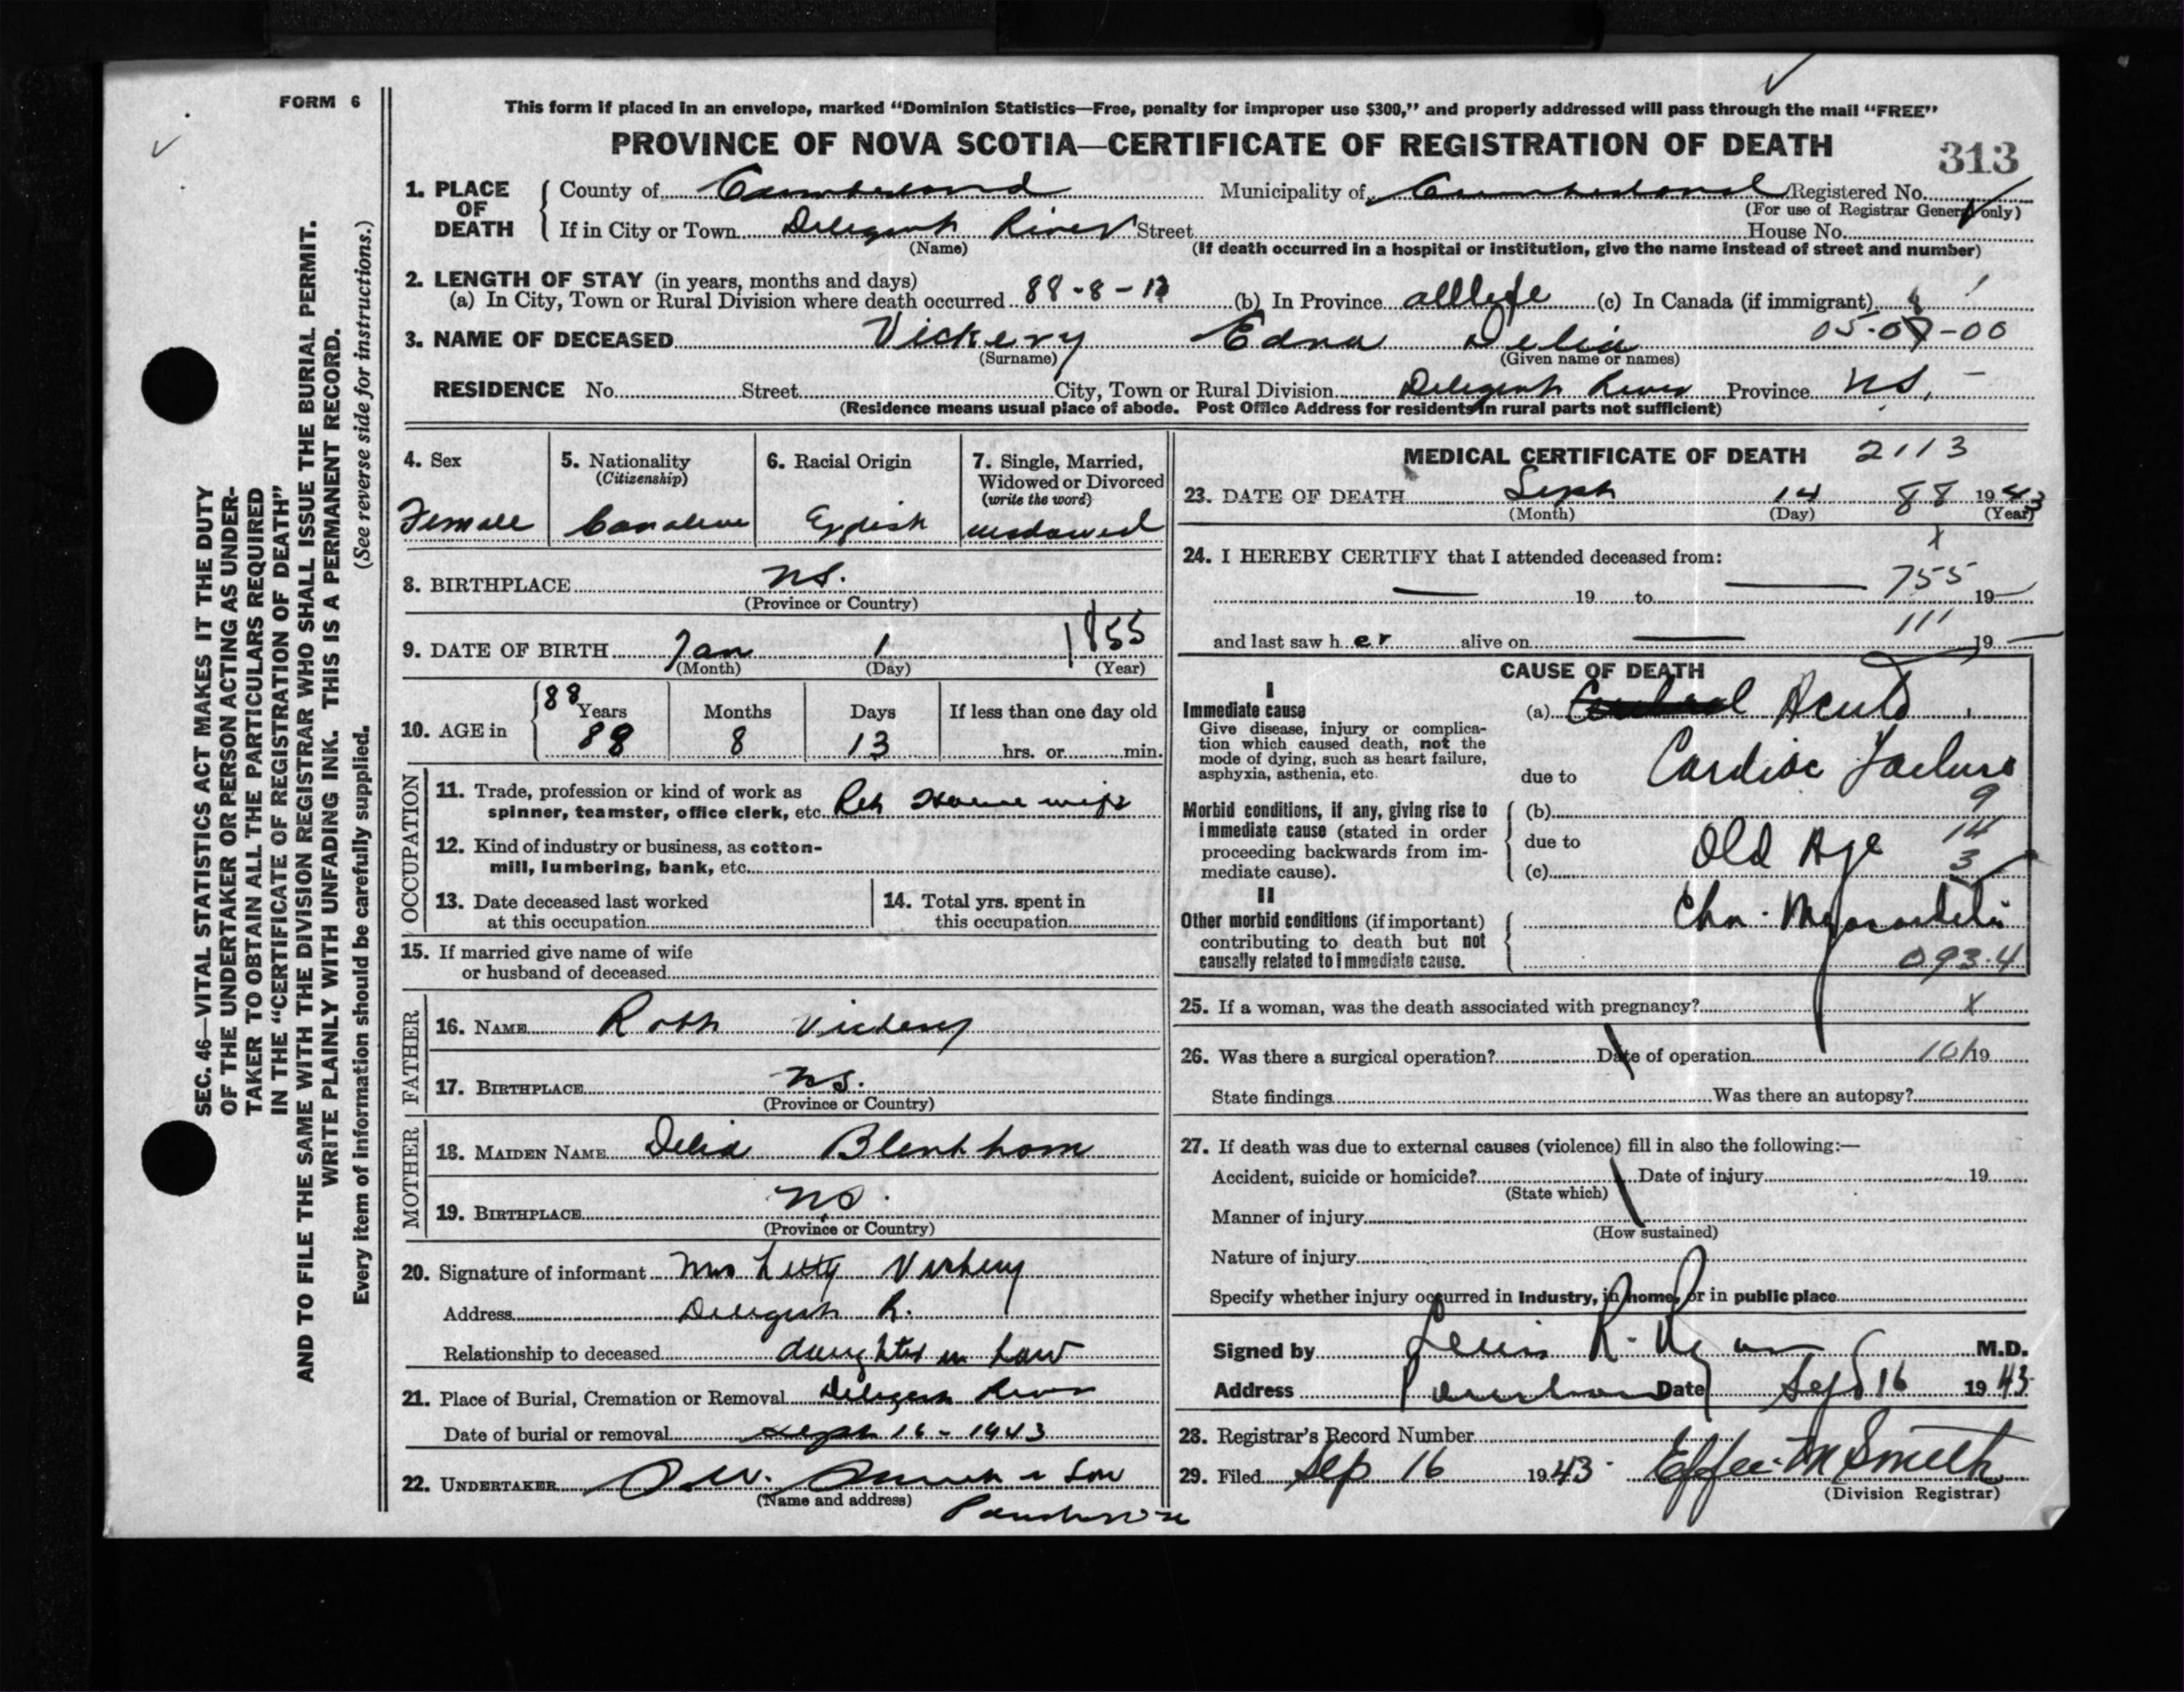 FORM 6
This form if placed in an envelope, marked “Dominion Statistics—Free, penalty for improper use $300,” and properly addressed will pass through the mail “FREE”
PROVINCE OF NOVA SCOTIA—CERTIFICATE OF REGISTRATION OF DEATH
313
1. PLACE OF DEATH
County of Cumberland Municipality of Cumberland Registered No.
(For use of Registrar General only)
If in City or Town Deligent River Street House No.
(Name) (If death occurred in a hospital or institution, give the name instead of street and number)
2. LENGTH OF STAY (in years, months and days)
(a) In City, Town or Rural Division where death occurred 88-8-13 (b) In Province all life (c) In Canada (if immigrant)
3. NAME OF DECEASED Vickery Edna Delia 05-09-00
(Surname) (Given name or names)
RESIDENCE No. Street City, Town or Rural Division Deligent River Province N.S.
(Residence means usual place of abode. Post Office Address for residents in rural parts not sufficient)
4. Sex
Female
5. Nationality
(Citizenship)
Canadian
6. Racial Origin
English
7. Single, Married, Widowed or Divorced
(write the word)
widowed
8. BIRTHPLACE N.S.
(Province or Country)
9. DATE OF BIRTH Jan 1 1855
(Month) (Day) (Year)
10. AGE in
88
Years Months Days If less than one day old
88 8 13 hrs. or min.
OCCUPATION
11. Trade, profession or kind of work as
spinner, teamster, office clerk, etc. Ret House wife
12. Kind of industry or business, as cotton-
mill, lumbering, bank, etc.
13. Date deceased last worked
at this occupation
14. Total yrs. spent in
this occupation
15. If married give name of wife
or husband of deceased
FATHER
16. NAME Robt Vickery
17. BIRTHPLACE N.S.
(Province or Country)
MOTHER
18. MAIDEN NAME Delia Blenkhorn
19. BIRTHPLACE N.S.
(Province or Country)
20. Signature of informant Mrs Letty Vickery
Address Deligent R.
Relationship to deceased daughter in law
21. Place of Burial, Cremation or Removal Deligent River
Date of burial or removal Sept 16 - 1943
22. UNDERTAKER & Son
(Name and address)
Parrsboro
MEDICAL CERTIFICATE OF DEATH 2113
23. DATE OF DEATH Sept 14 88 1943
(Month) (Day) (Year)
24. I HEREBY CERTIFY that I attended deceased from:
x
— 19 to — 755 19—
111
and last saw her alive on — 19—
CAUSE OF DEATH
I
Immediate cause
Give disease, injury or complica-
tion which caused death, not the
mode of dying, such as heart failure,
asphyxia, asthenia, etc.
(a) Acute
due to Cardiac Failure
Morbid conditions, if any, giving rise to
immediate cause (stated in order
proceeding backwards from im-
mediate cause).
(b) 9
due to Old Age 14
(c) 3
II
Other morbid conditions (if important)
contributing to death but not
causally related to immediate cause.
Chr. Myocarditis
093.4
25. If a woman, was the death associated with pregnancy? x
26. Was there a surgical operation? Date of operation 101 19
State findings Was there an autopsy?
27. If death was due to external causes (violence) fill in also the following:—
Accident, suicide or homicide? Date of injury 19
(State which)
Manner of injury
(How sustained)
Nature of injury
Specify whether injury occurred in Industry, in home, or in public place
Signed by Lewis R. Ryan M.D.
Address Parrsboro Date Sept 16 1943
28. Registrar's Record Number
29. Filed Sep 16 1943. Effie M Smith
(Division Registrar)
SEC. 46—VITAL STATISTICS ACT MAKES IT THE DUTY
OF THE UNDERTAKER OR PERSON ACTING AS UNDER-
TAKER TO OBTAIN ALL THE PARTICULARS REQUIRED
IN THE “CERTIFICATE OF REGISTRATION OF DEATH”
AND TO FILE THE SAME WITH THE DIVISION REGISTRAR WHO SHALL ISSUE THE BURIAL PERMIT.
WRITE PLAINLY WITH UNFADING INK. THIS IS A PERMANENT RECORD.
Every item of information should be carefully supplied. (See reverse side for instructions.)